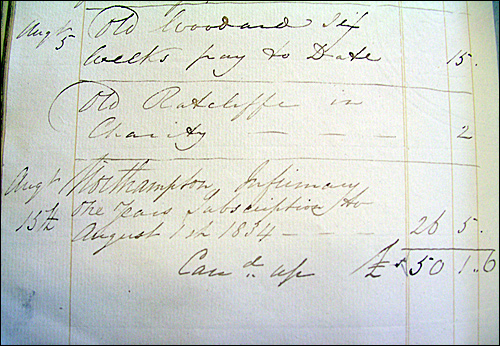 Augt 5 Old Woodard Six
weeks pay to Date 15
Old Ratcliffe in
Charity - - - 2
Augt Northampton Infirmary
15th One Years Subscription to
August 1st 1834 - - - 26 5
Carrd up £ 50 1 . 6